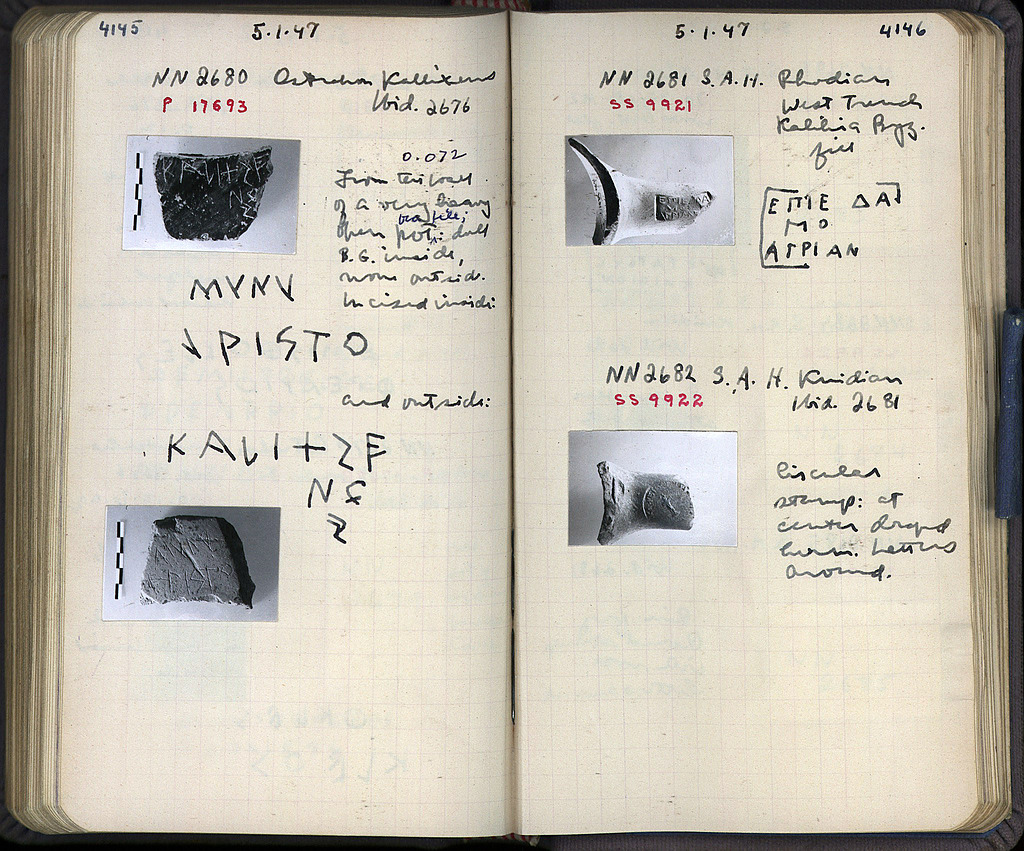 4145 5·1·47
NN 2680 Ostrakon Kallixenos
P 17693 Ibid. 2676
0.072
From the wall
of a very heavy
open pot: dull
B.G. inside,
none outside.
Incised inside:
ΜΥΝΥ
ΡΙSΤΟ
and outside:
ΚΑLΙ+ΣΕ
Ν
5·1·47 4146
NN 2681 S.A.H. Rhodian
SS 9921 West Trench
Byz.
fill
ΕΠΙΕ ΔΑ
ΜΟ
ΑΓΡΙΑΝ
NN 2682 S.A.H. Knidian
SS 9922 Ibid. 2681
Circular
stamp: at
center draped
herm. Letters
around.